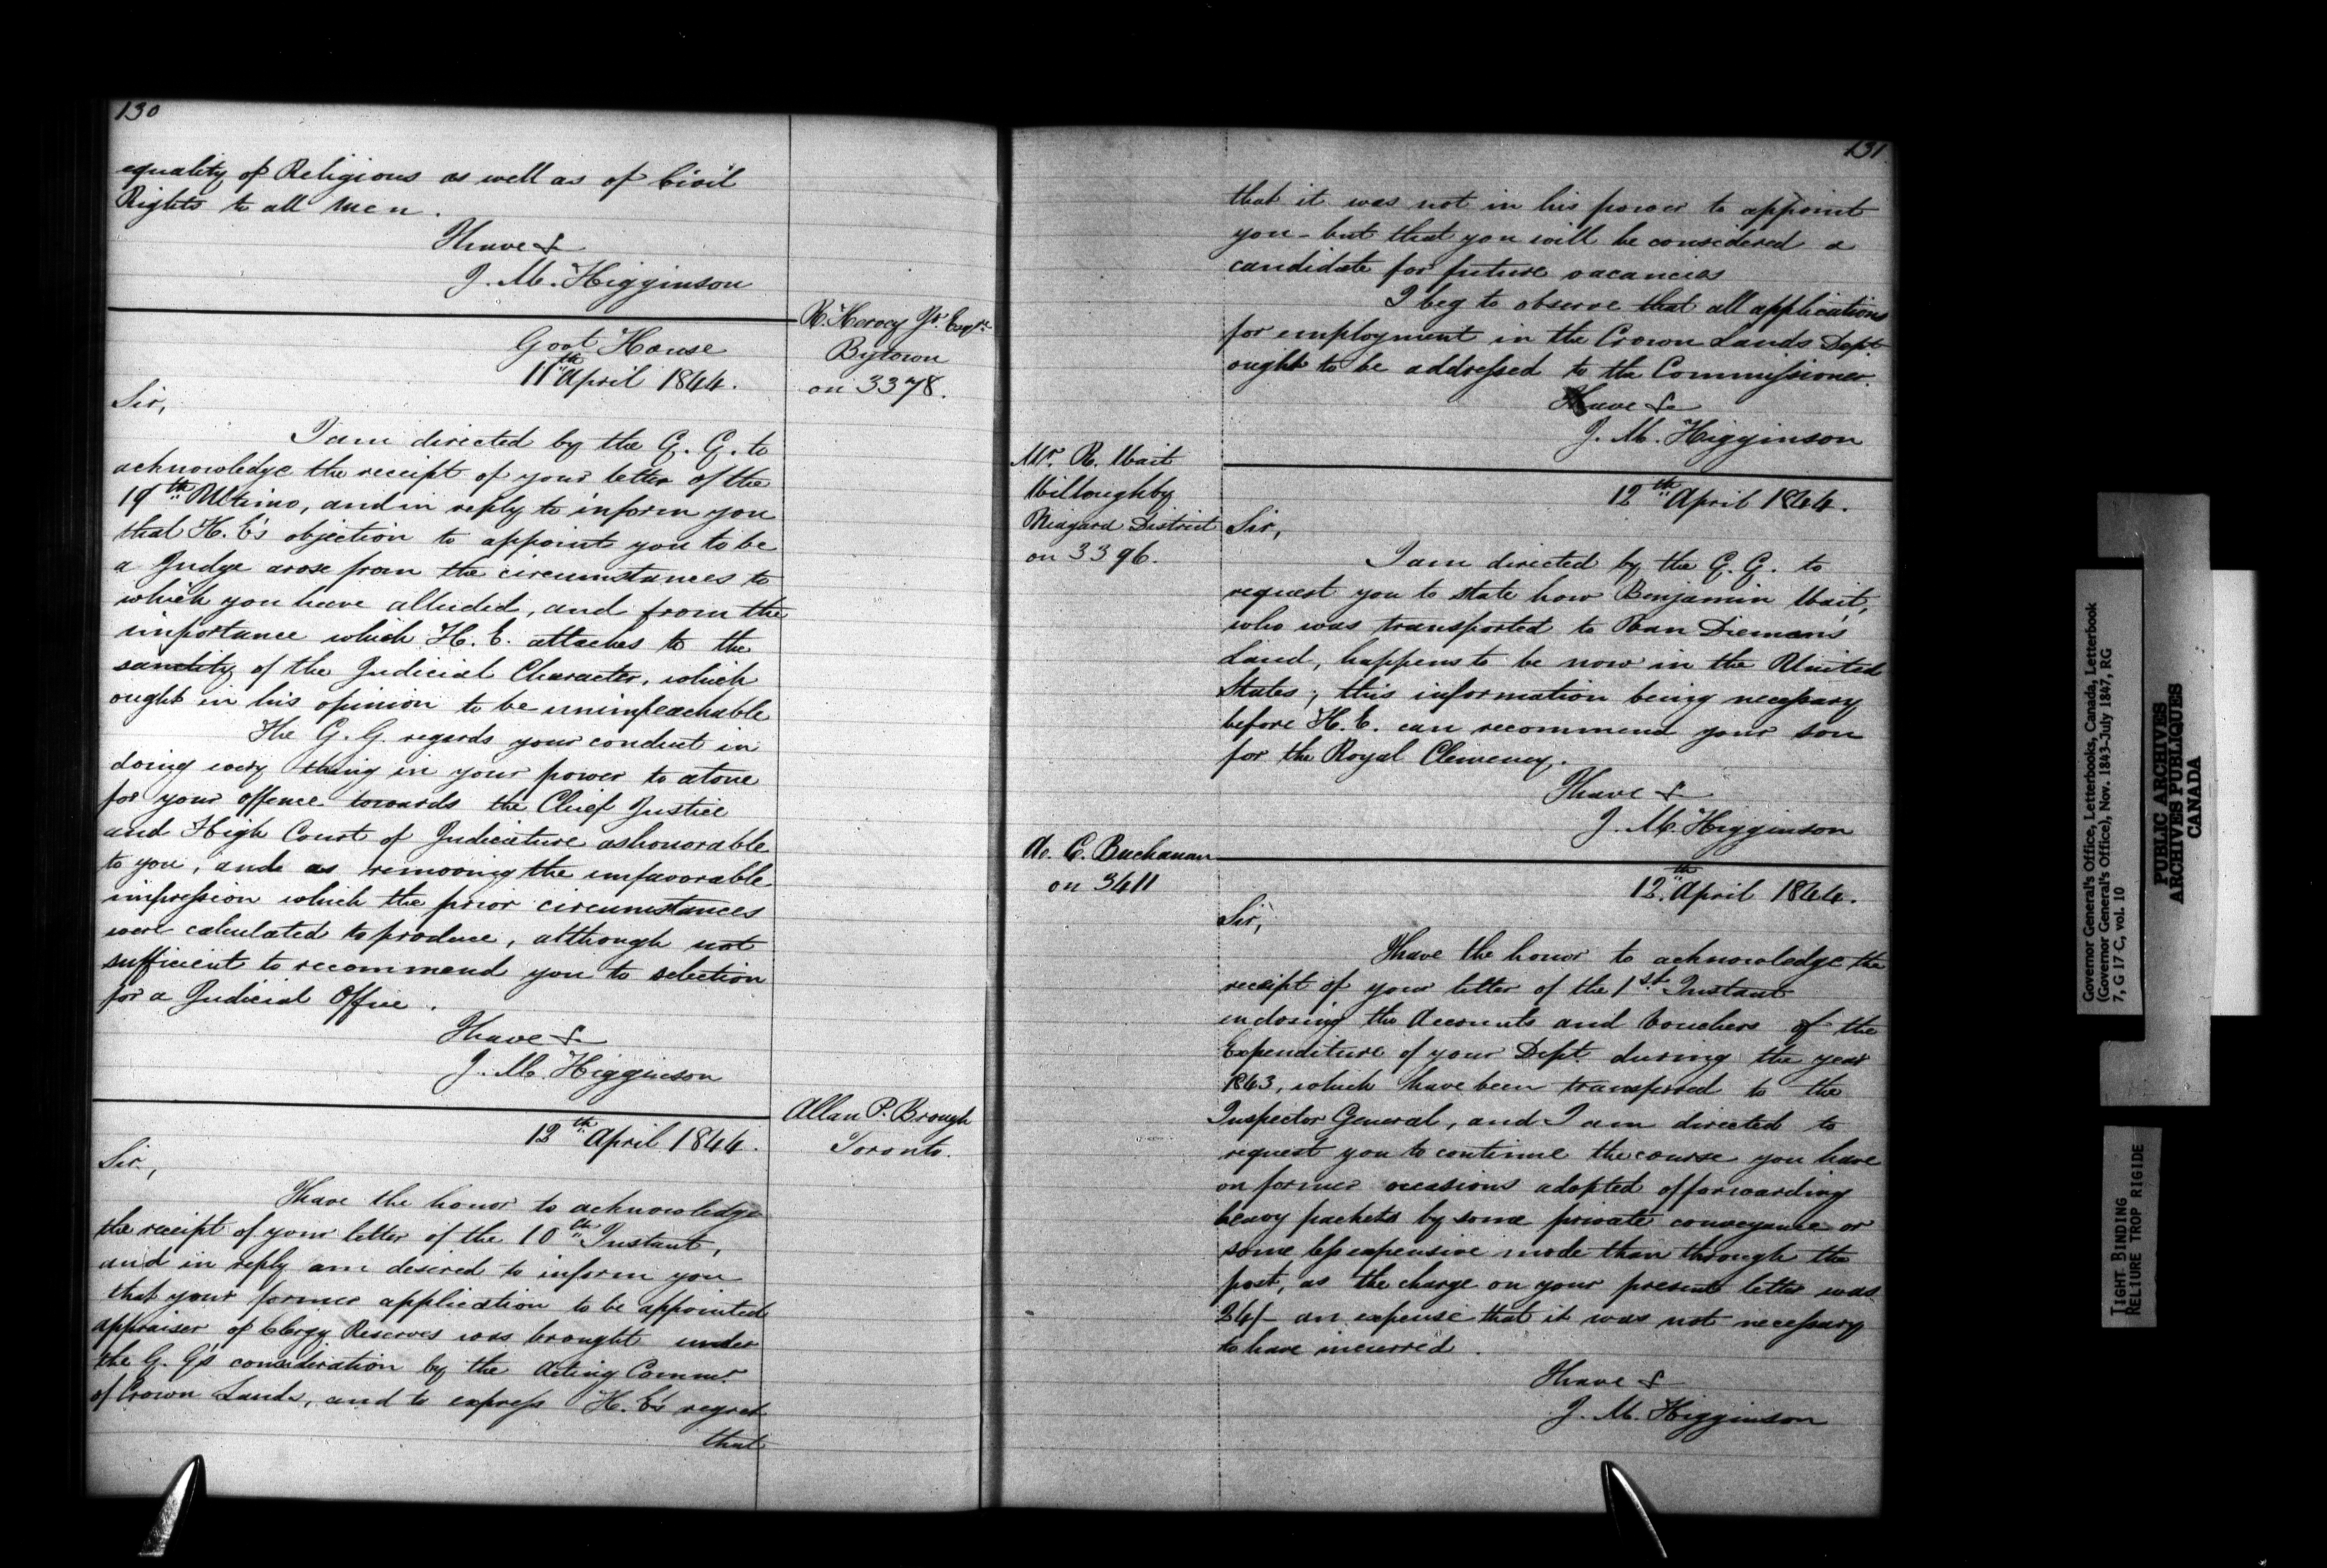 130
equality of Religious as well as of Civil
Rights to all men.
I have &
J. M. Higginson
R. Hervey Jr. Esqre.
Bytown
on 3378.
Govt House
11th April 1844.
Sir,
I am directed by the G. G. to
acknowledge the receipt of your letter of the
19th Ultimo, and in reply to inform you
that H. E's objection to appoint you to be
a Judge arose from the circumstances to
which you have alluded, and from the
importance which H. E. attaches to the
sanctity of the Judicial Character, which
ought in his opinion to be unimpeachable
The G. G. regards your conduct in
doing every thing in your power to atone
for your offence towards the Chief Justice
and High Court of Judicature as honorable
to you, and as removing the unfavorable
impression which the prior circumstances
were calculated to produce, although not
sufficient to recommend you to selection
for a Judicial Office.
I have &
J. M. Higginson
Allan P. Brough
Toronto.
12th April 1844.
Sir,
I have the honor to acknowledge
the receipt of your letter of the 10th Instant,
and in reply am desired to inform you
that your former application to be appointed
appraiser of Clergy Reserves was brought under
the G. G's consideration by the Acting Commr.
of Crown Lands, and to express H. E's regret
that
131
that it was not in his power to appoint
you - but that you will be considered a
candidate for future vacancies
I beg to observe that all applications
for employment in the Crown Lands Dept
ought to be addressed to the Commissioner.
I have &c
J. M. Higginson
Mr. R. Wait
Willoughby
Niagara District
on 3396.
12th April 1844.
Sir,
I am directed by the G. G. to
request you to state how Benjamin Wait,
who was transported to Van Diemans
Land, happens to be now in the United
States; this information being necessary
before H. E. can recommend your son
for the Royal Clemency.
I have &
J. M. Higginson
A. C. Buchanan
on 3411
12th April 1844.
Sir,
I have the honor to acknowledge the
receipt of your letter of the 1st. Instant
enclosing the Accounts and Vouchers of the
Expenditure of your Dept during the year
1843, which have been transferred to the
Inspector General, and I am directed to
request you to continue the course you have
on former occasions adopted of forwarding
heavy packets by some private conveyance or
some less expensive mode than through the
post, as the charge on your present letter was
24/- an expense that it was not necessary
to have incurred.
I have &
J. M. Higginson
Governor General's Office, Letterbooks, Canada, Letterbook
(Governor General's Office), Nov. 1843-July 1847, RG
7, G 17 C, vol. 10
PUBLIC ARCHIVES
ARCHIVES PUBLIQUES
CANADA
TIGHT BINDING
RELIURE TROP RIGIDE